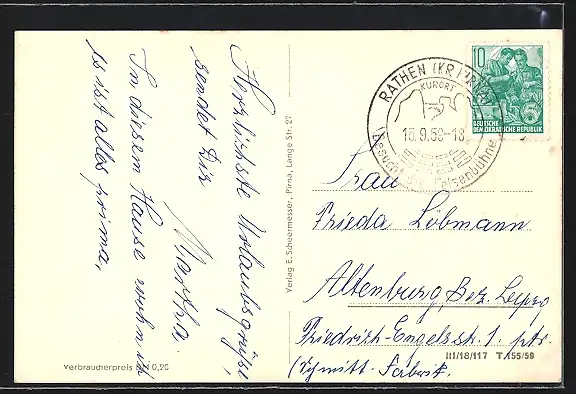 Herzlichste Urlaubsgrüße,
sendet Dir
Martha.
In diesem Hause wohn ich
es ist alles prima,
Verbraucherpreis DM 0,20
Verlag E. Scheermesser, Pirna, Lange Str. 27
RATHEN (KR PIRNA)
KURORT
15.9.59-18
Besucht die Felsenbühne
10
DEUTSCHE
DEMOKRATISCHE REPUBLIK
Frau
Frieda Löbmann
Altenburg, Bez. Leipzg
Friedrich-Engelsstr. 1. ptr.
(Schmitt-Fabrik.
III/18/117 T 155/59